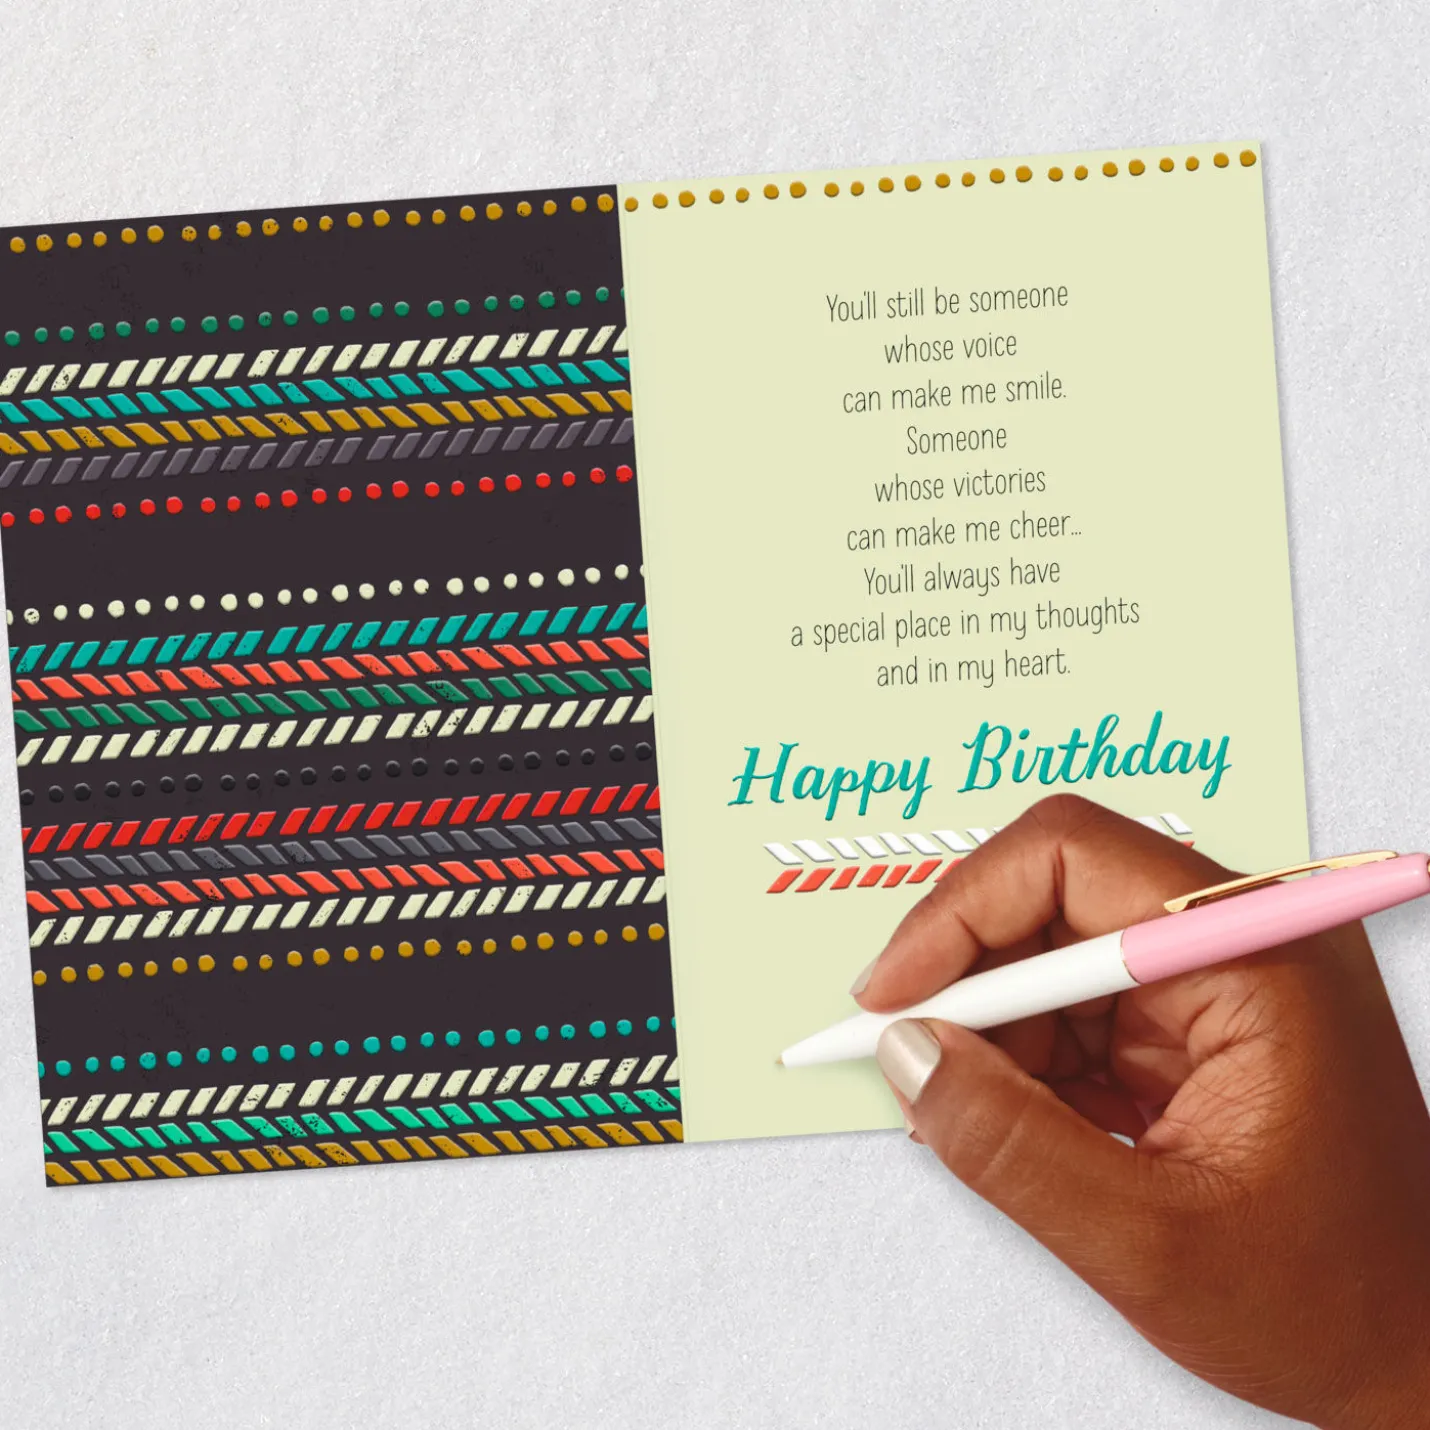 You'll still be someone
whose voice
can make me smile.
Someone
whose victories
can make me cheer...
You'll always have
a special place in my thoughts
and in my heart.
Happy Birthday